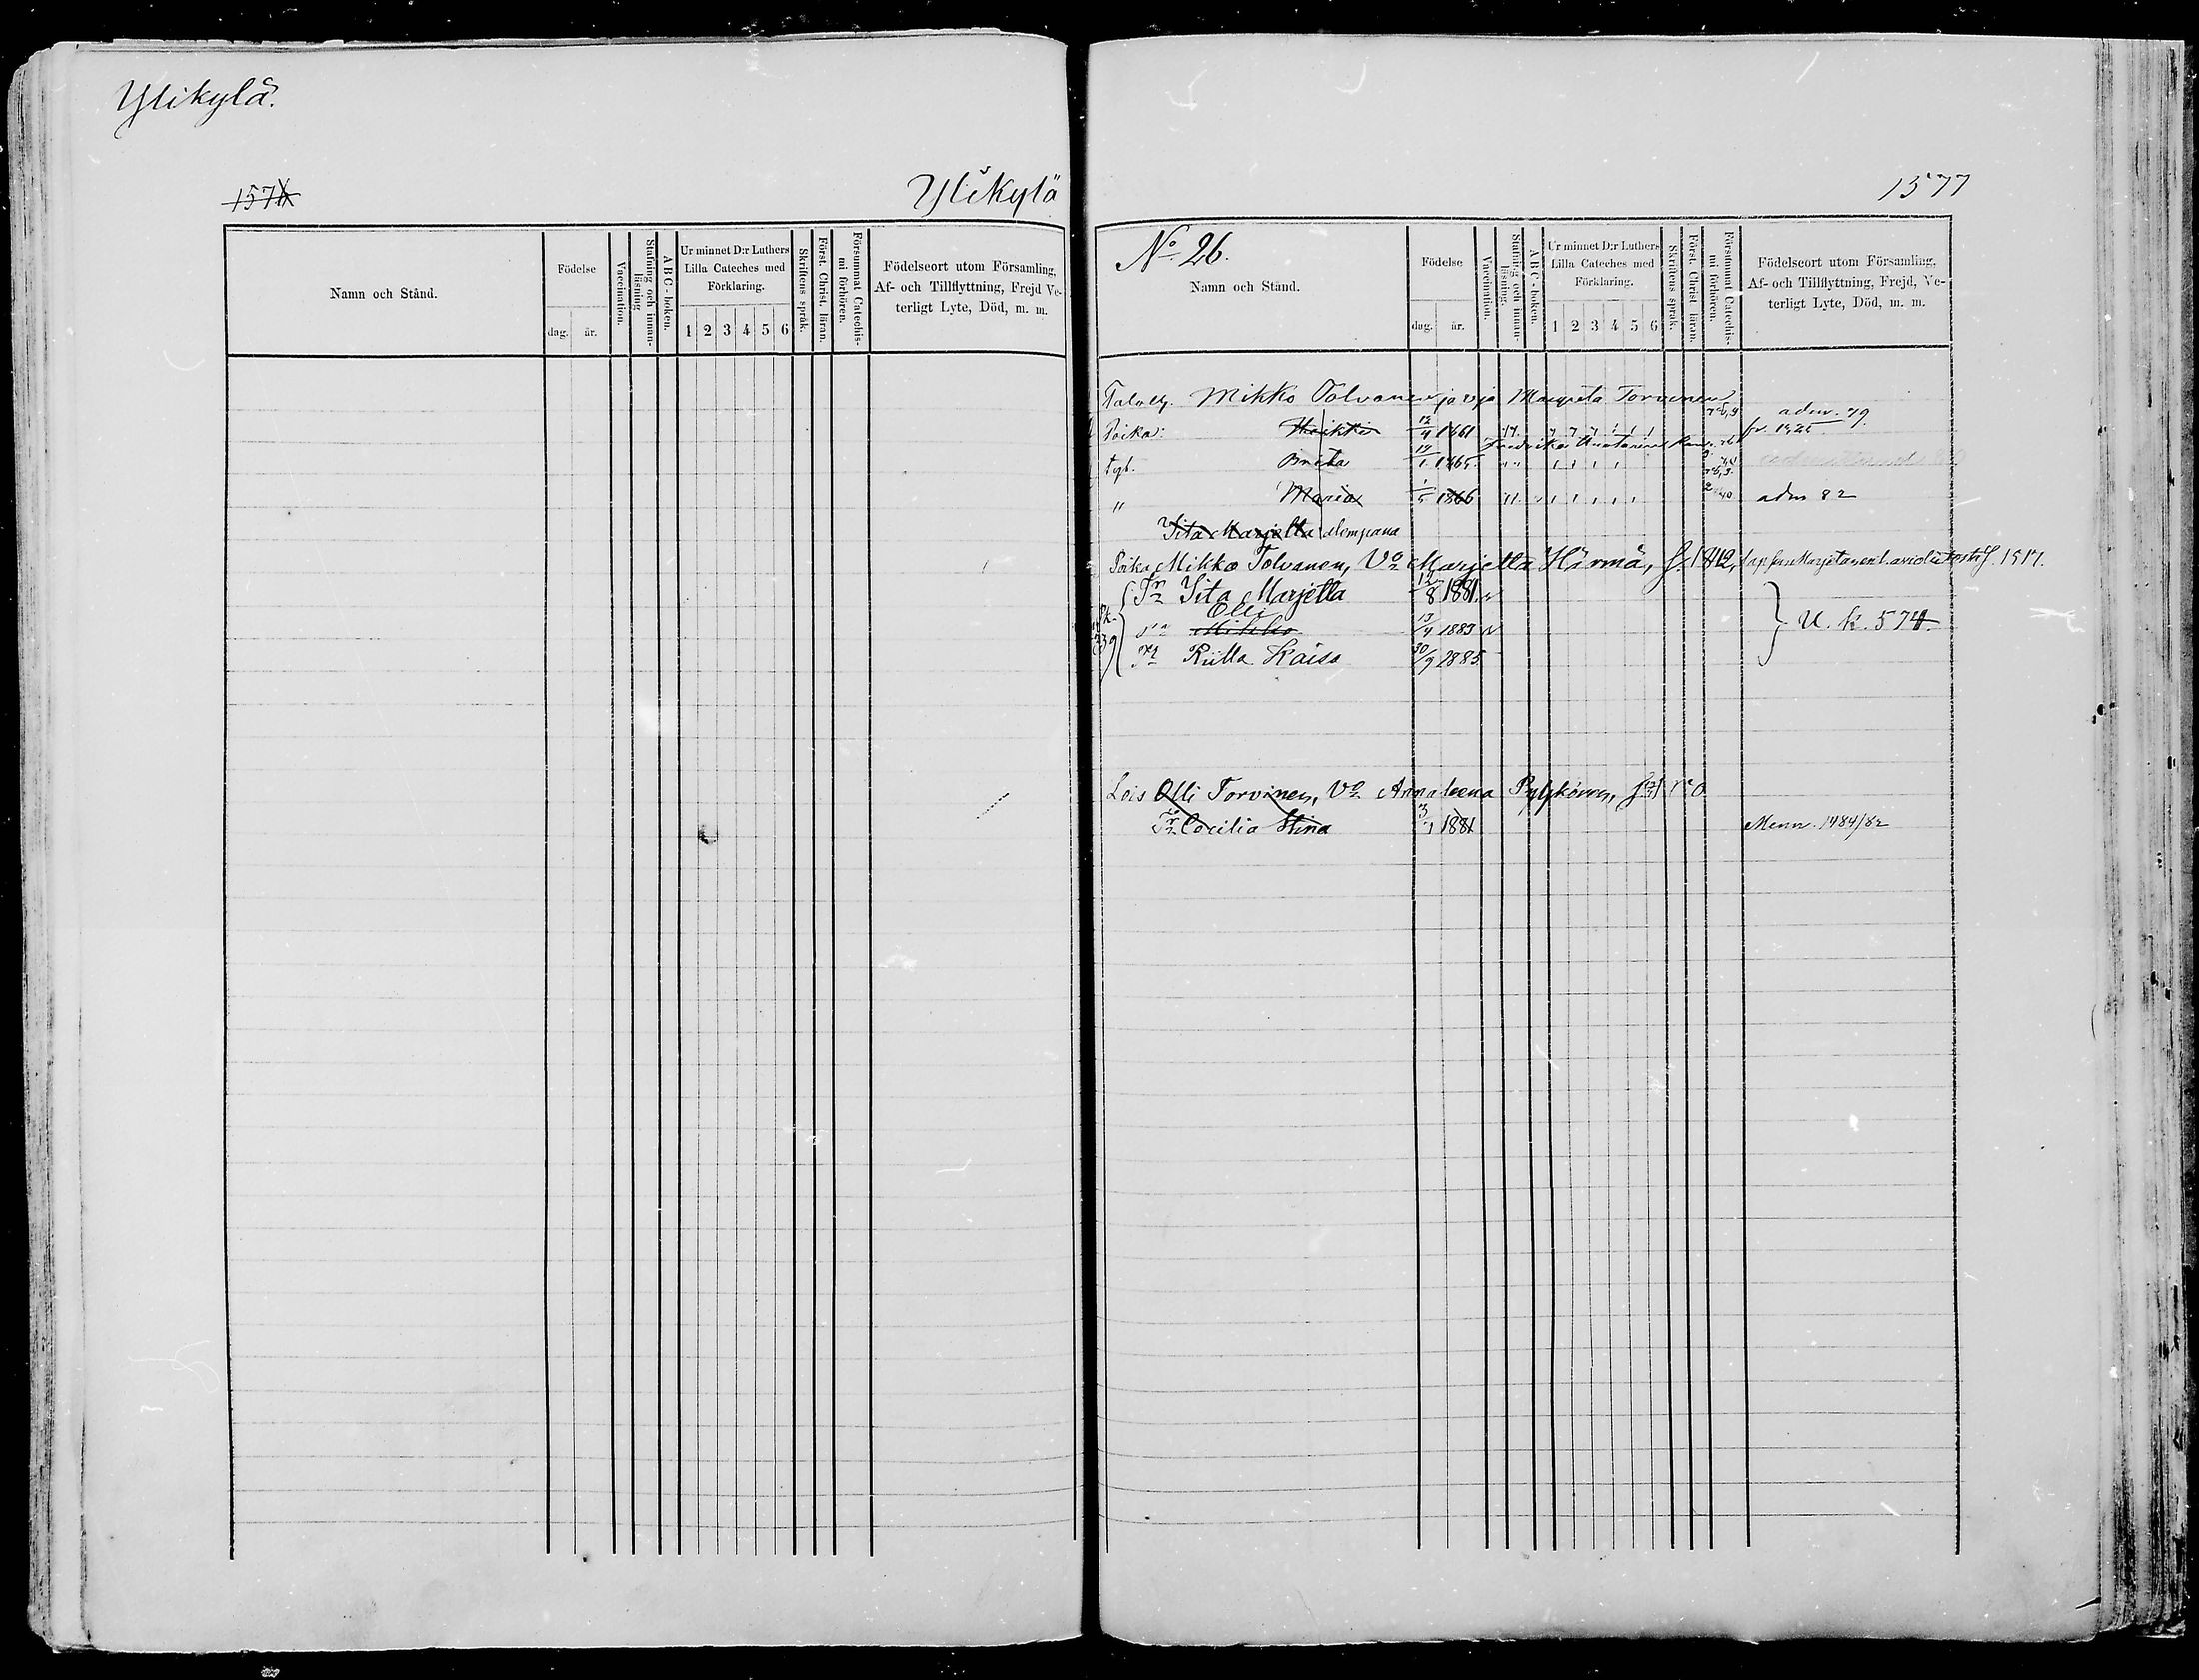 Ylikylä.
157
Ylikylä
Namn och Stånd.
Födelse
dag. år.
Vaccination.
Stafning och innanläsning
A B C - boken.
Ur minnet D:r Luthers Lilla Cateches med Förklaring.
1 2 3 4 5 6
Skriftens språk.
Först. Christ läran.
Försummat Catechismi förhören.
Födelseort utom Församling,
Af- och Tillflyttning, Frejd Ve-
terligt Lyte, Död, m. m.
1577
No 26.
Namn och Stånd.
Födelse
dag. år.
Vaccination.
Stafning och innanläsning.
A B C - boken.
Ur minnet D:r Luthers Lilla Cateches med Förklaring.
1 2 3 4 5 6
Skriftens språk.
Först. Christ läran.
Försummat Catechismi förhören.
Födelseort utom Församling,
Af- och Tillflyttning, Frejd, Ve-
terligt Lyte, Död, m. m.
Mikko Tolvanen ja vjo Margreta Torvinen
Poika: Heikki 12/4 1861 adm. 79.
Tyt. Brita 1865
" Maria 1/5 1866 adm 82
Iita Marjetta alempana
Poika Mikko Tolvanen, Vo Marjetta Hirmä,
Tr Iita Marjetta 12/8 1881
Olli
Mikko 13/4 1883
Riitta Kaisa 30/9 1885
U. k. 574.
Lois Olli Torvinen, Vo Anna Leena Pylkönen,
Tr Cecilia Stina 1881 Menn. 1484/82